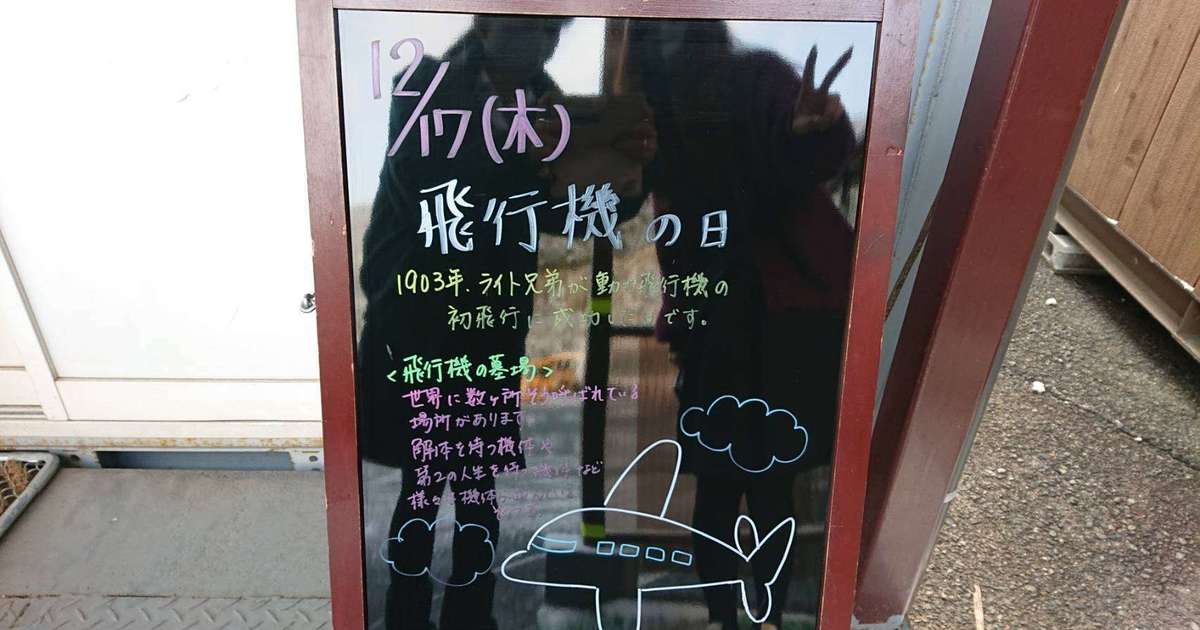 12/17(木)
飛行機の日
1903年、ライト兄弟が動力飛行機の
初飛行に成功した日です。
<飛行機の墓場>
世界に数ヶ所そう呼ばれている
場所があります。
解体を待つ機体や
第2の人生を待つ機体など
様々な機体